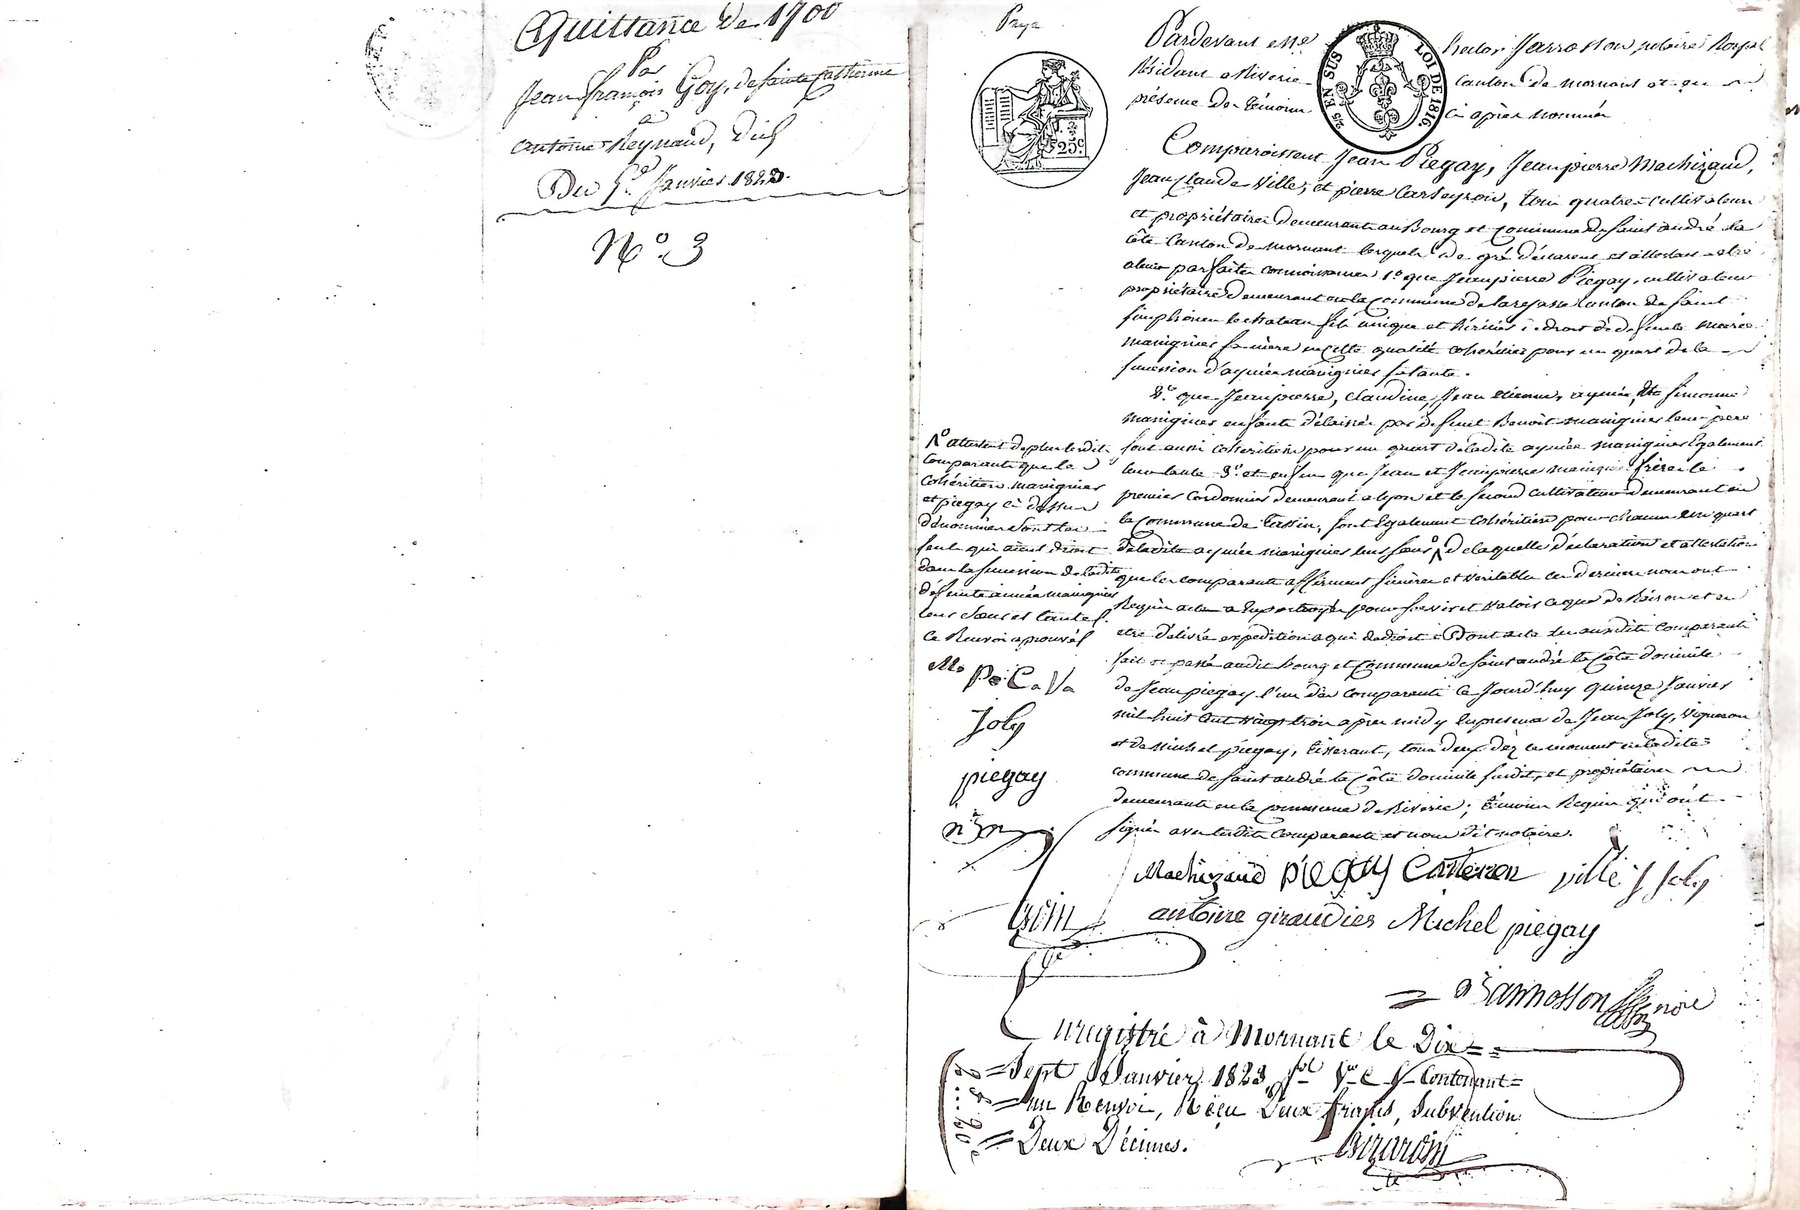 Quittance de 1700
Par
Jean françois Goy, de Sainte Catherine
a
antoine Reynaud, dud.
Du 5 Janvier 1823.
N.º 3
Paye
EN SUS
LOI DE 1816
25
25c.
Pardevant Me hector Jarrosson, notaire Royal
Résidant a Riverie canton de mornant et en
présence des témoins ci après nommés
Comparoissent Jean Piegay, Jeanpierre Machizaud,
Jean Claude Ville, et pierre Carteyron, tous quatre cultivateurs
et propriétaires demeurants au Bourg et Commune de Saint andré la
côte Canton de mornant lesquels de gré déclarent et attestent
avoir parfaite connoissance 1º que Jeanpierre Piegay, cultivateur
propriétaire demeurant en la Commune de larajasse canton de Saint
simphorien le chateau fils unique et héritier de droit de défunte
manignier sa mère en cette qualité cohéritier pour un quart de la
succession d'aymée manignier sa tante.
2º que Jeanpierre, claudine, Jean etienne, aymée, et simonne
manignier enfants délaissés par defunt Benoit manignier leur père
sont aussi cohéritiers pour un quart de ladite aymée manignier Egalement
leur tante 3º et enfin que Jean et Jeanpierre manignier frères le
premier Cordonnier demeurant a lyon et le second cultivateur demeurant en
la Commune de Tassin, sont Egalement Cohéritiers pour chacun un quart
de ladite aymée manignier leur sœur de laquelle déclaration et attestation
que les comparants affirment sincère et véritable ces derniers nous ont
Requis acte a eux octroyé pour servir et valoir ce que de Raison et en
etre délivré expedition a qui de droit Dont acte auxdits comparants
fait et passé audit bourg et Commune de Saint andré la Côte domicile
de Jean piegay l'un des comparants ce Jourd'huy quinze Janvier
mil huit Cent vingt trois après midy En présence de Jean Joly, vigneron
et de Michel piegay, tisserant, tous deux
commune de Saint andré la Côte domicile susdit, et propriétaires
demeurants en la Commune de Riverie; témoins Requis qui ont
signé avec lesdits comparants et nous dit notaire.
attestent de plus lesdits
Comparants que les
Cohéritiers manignier
et piegay ci dessus
dénommés sont les
seuls qui aient droit
dans la succession de ladite
défunte aimée manignier
leur sœur et tante
Ce Renvoi aprouvé
Ma P. Ca Va
Joly
piegay
Machizaud PIEGAY Carteron ville J Joly
antoine giraudier Michel piegay
Jarrosson nore
Enregistré à Mornant le Dix
Sept Janvier 1823, fol Contenant
un Renvoi, Reçu Deux francs, Subvention
Deux Décimes.
2. 20c